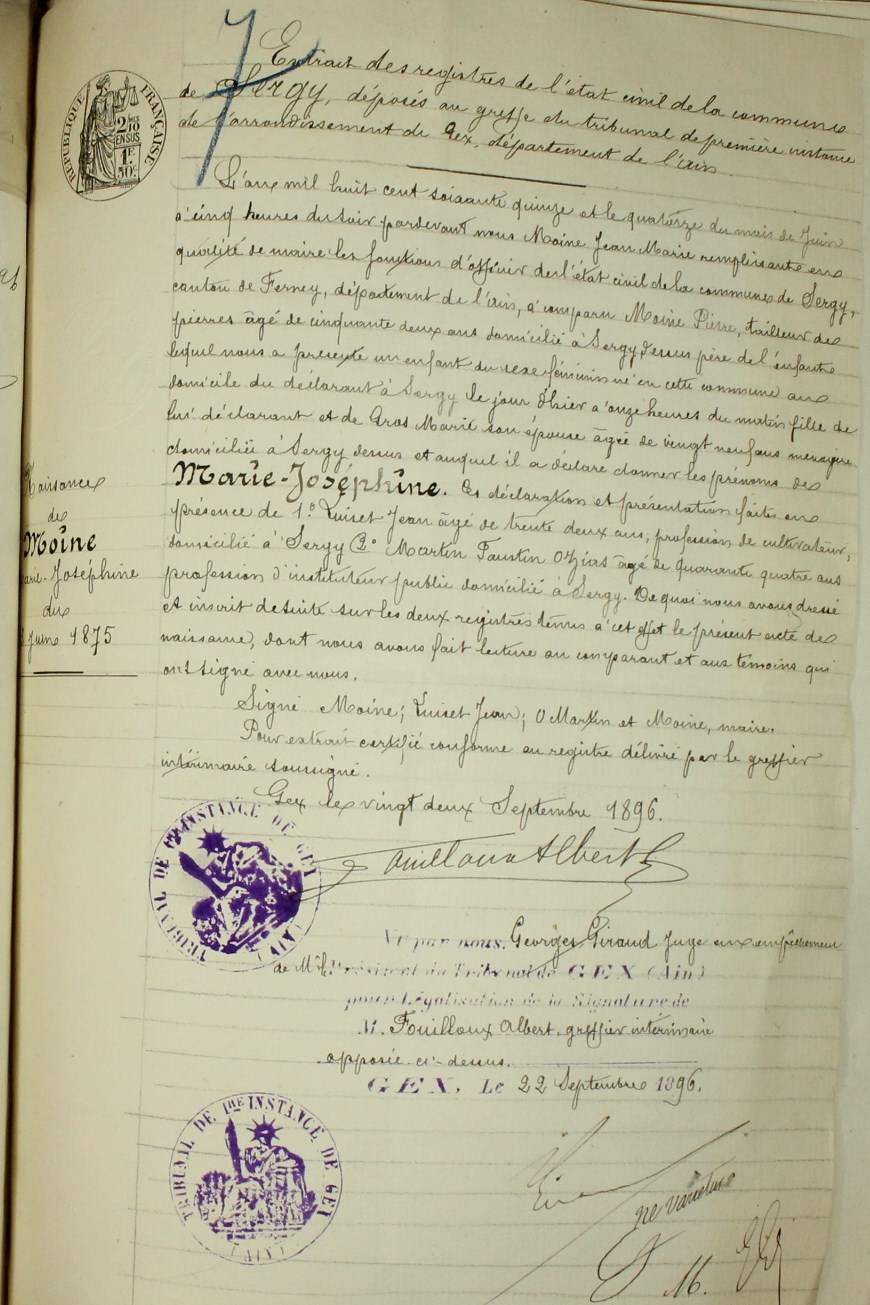 RÉPUBLIQUE FRANÇAISE
2/10es
EN SUS
1F
50c
Extrait des registres de l'état civil de la commune
de Sergy, déposés au greffe du tribunal de première instance
de l'arrondissement de Gex, département de l'ain.
L'an mil huit cent soixante quinze et le quatorze du mois de Juin
à cinq heures du soir pardevant nous Moine Jean Marie remplissant en
qualité de maire les fonctions d'officier de l'état civil de la commune de Sergy,
canton de Ferney, département de l'ain, a comparu Moine Pierre, tailleur de
pierres âgé de cinquante deux ans domicilié à Sergy dessus père de l'enfant
lequel nous a présenté un enfant du sexe féminin né en cette commune au
domicile du déclarant à Sergy le jour d'hier à onze heures du matin fille de
lui déclarant et de Gros Marie son épouse âgée de vingt neuf ans ménagère
domiciliée à Sergy dessus et auquel il a déclaré donner les prénoms de
Marie-Joséphine. Ces déclaration et présentation faites en
présence de 1.o Quiset Jean âgé de trente deux ans, profession de cultivateur,
domicilié à Sergy 2.o Martin Faustin Ozias âgé de quarante quatre ans
profession d'instituteur public domicilié à Sergy. De quoi nous avons dressé
et inscrit de suite sur les deux registres tenus à cet effet le présent acte de
naissance, dont nous avons fait lecture au comparant et aux témoins qui
ont signé avec nous.
Naissance
de
Moine
Marie-Joséphine
du
Juin 1875
Signé Moine; Quiset Jean; O Martin et Moine, maire.
Pour extrait certifié conforme au registre délivré par le greffier
intérimaire soussigné.
Gex le vingt deux Septembre 1896.
TRIBUNAL DE 1RE INSTANCE DE GEX
(AIN)
Fouilloux Albert
Vu par nous, Georges Giraud Juge en empêchement
de M. le Président du Tribunal de GEX (Ain)
pour Légalisation de la Signature de
M. Fouilloux Albert, greffier intérimaire
apposée ci-dessus.
GEX, Le 22 Septembre 1896.
TRIBUNAL DE 1RE INSTANCE DE GEX
(AIN)
ne varietur
M.